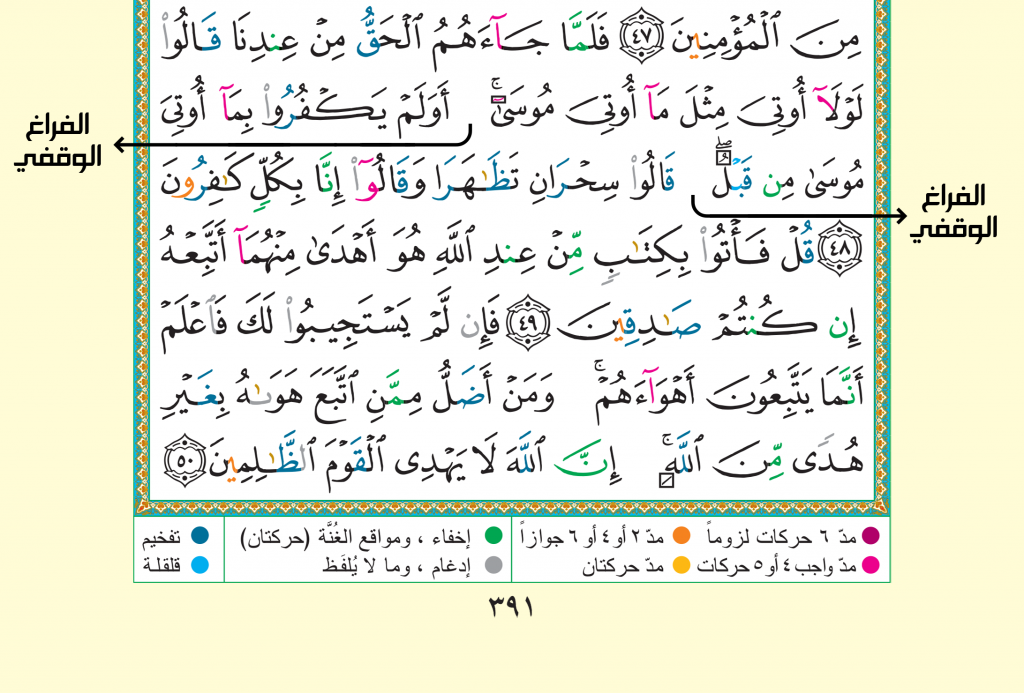 مِنَ ٱلْمُؤْمِنِينَ ٤٧ فَلَمَّا جَآءَهُمُ ٱلْحَقُّ مِنْ عِندِنَا قَالُوا۟
لَوْلَآ أُوتِىَ مِثْلَ مَآ أُوتِىَ مُوسَىٰٓ ۚ أَوَلَمْ يَكْفُرُوا۟ بِمَآ أُوتِىَ
الفراغ
الوقفي
مُوسَىٰ مِن قَبْلُ ۖ قَالُوا۟ سِحْرَانِ تَظَـٰهَرَا وَقَالُوٓا۟ إِنَّا بِكُلٍّ كَـٰفِرُونَ
الفراغ
الوقفي
٤٨ قُلْ فَأْتُوا۟ بِكِتَـٰبٍ مِّنْ عِندِ ٱللَّهِ هُوَ أَهْدَىٰ مِنْهُمَآ أَتَّبِعْهُ
إِن كُنتُمْ صَـٰدِقِينَ ٤٩ فَإِن لَّمْ يَسْتَجِيبُوا۟ لَكَ فَٱعْلَمْ
أَنَّمَا يَتَّبِعُونَ أَهْوَآءَهُمْ ۚ وَمَنْ أَضَلُّ مِمَّنِ ٱتَّبَعَ هَوَىٰهُ بِغَيْرِ
هُدًى مِّنَ ٱللَّهِ ۚ إِنَّ ٱللَّهَ لَا يَهْدِى ٱلْقَوْمَ ٱلظَّـٰلِمِينَ ٥٠
مدّ ٦ حركات لزوماً مدّ ٢ أو ٤ أو ٦ جوازاً إخفاء ، ومواقع الغُنَّة (حركتان) تفخيم
مدّ واجب ٤ أو ٥ حركات مدّ حركتان إدغام ، وما لا يُلفَظ قلقلة
٣٩١